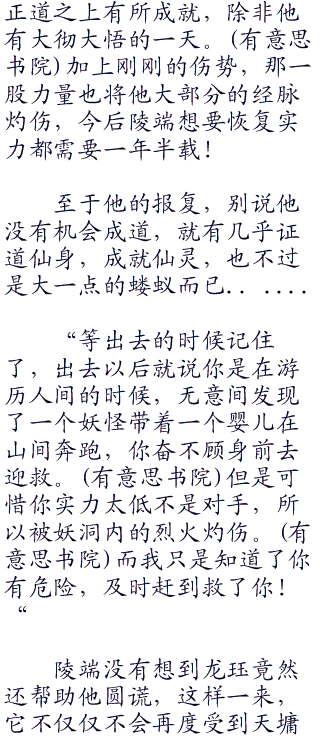 正道之上有所成就，除非他
有大彻大悟的一天。(有意思
书院)加上刚刚的伤势，那一
股力量也将他大部分的经脉
灼伤，今后陵端想要恢复实
力都需要一年半载！
至于他的报复，别说他
没有机会成道，就有几乎证
道仙身，成就仙灵，也不过
是大一点的蝼蚁而已......
“等出去的时候记住
了，出去以后就说你是在游
历人间的时候，无意间发现
了一个妖怪带着一个婴儿在
山间奔跑，你奋不顾身前去
迎救。(有意思书院)但是可
惜你实力太低不是对手，所
以被妖洞内的烈火灼伤。(有
意思书院)而我只是知道了你
有危险，及时赶到救了你！
“
陵端没有想到龙珏竟然
还帮助他圆谎，这样一来，
它不仅仅不会再度受到天墉